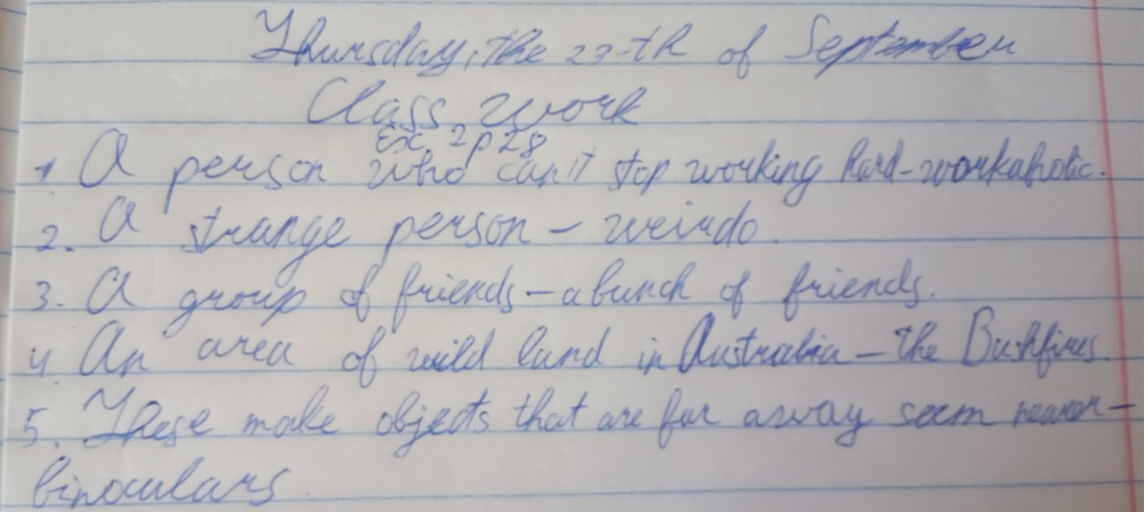 Thursday, the 23-th of September
Class work
Ex. 2 p 28
1 A person who can't stop working hard - workaholic.
2. A strange person - weirdo.
3. A group of friends - a bunch of friends.
4. An area of wild land in Australia - the Bushfires.
5. These make objects that are far away seem nearer -
binoculars.